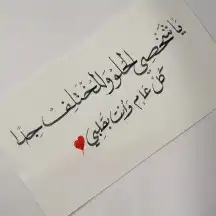 يا شخصي الحلو والمختلف جدا
كل عام وانت بقلبي